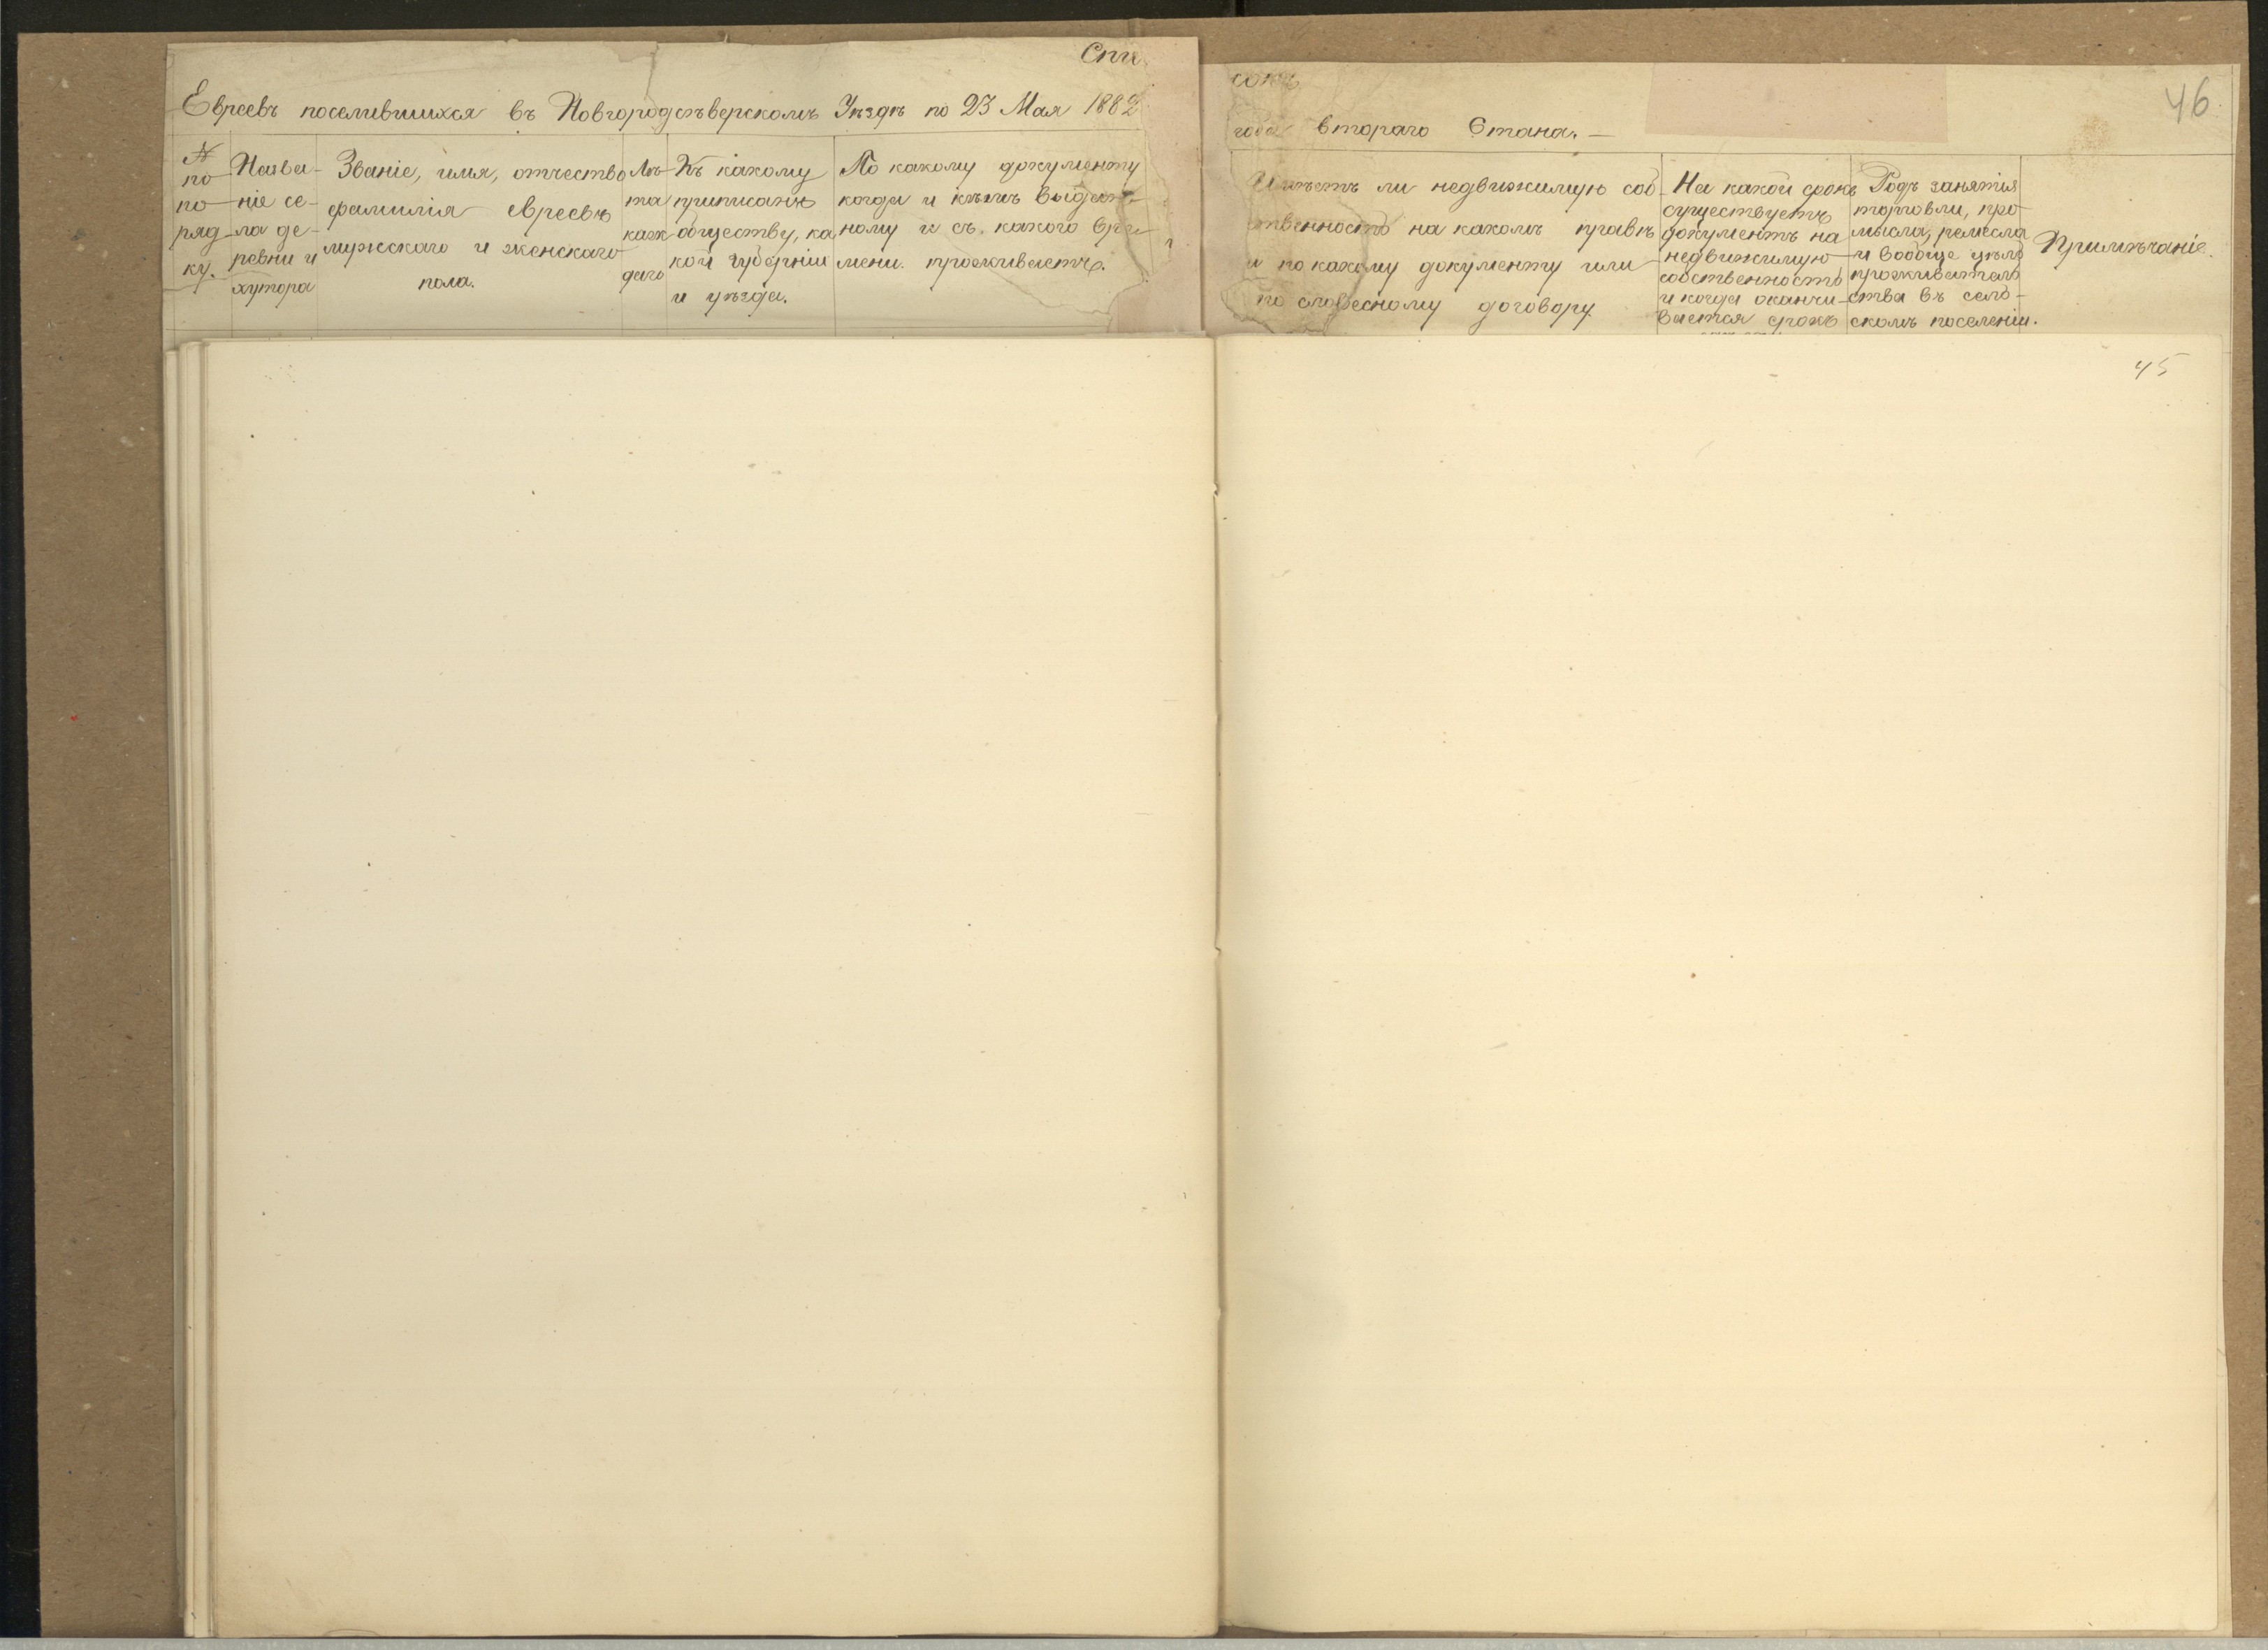 Спи
Евреевъ поселившихся въ Новгородсѣверскомъ Уѣздѣ по 23 Мая 1882
№
по
по
ряд
ку.
Назва-
ніе се-
ла де-
ревни и
хутора
Званіе, имя, отчество
фамилія евреевъ
мужскаго и женскаго
пола.
Лѣ
та
каж
даго
Къ какому
приписанъ
обществу, ка
кой губерніи
и уѣзда.
По какому документу
когда и кѣмъ выдан-
ному и съ какого вре
мени проживаетъ.
сокъ
года втораго Стана.—
46
Имѣетъ ли недвижимую соб
ственность на какомъ правѣ
и по какому документу или
по словесному договору
На какой срокъ
существуетъ
документъ на
недвижимую
собственность
и когда оканчи-
вается срокъ
Родъ занятія
торговли, про
мысла, ремесла
и вообще цѣль
проживатель
ства въ сель-
скомъ поселеніи.
Примѣчаніе.
45